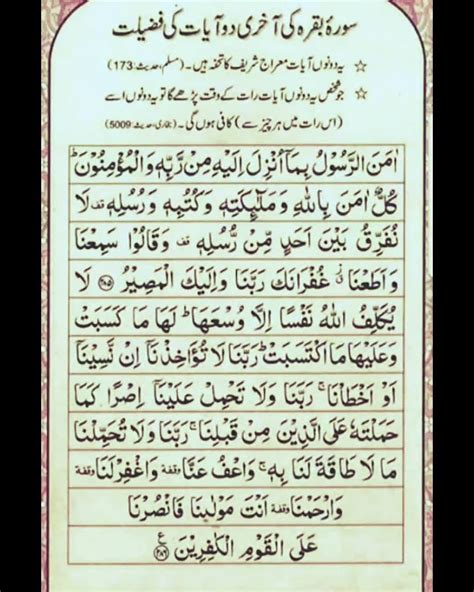 سورۂ بقرہ کی آخری دو آیات کی فضیلت
☆ یہ دونوں آیات معراج شریف کا تحفہ ہیں۔ (مسلم، حدیث:173)
☆ جو شخص یہ دونوں آیات رات کے وقت پڑھے گا تو یہ دونوں اسے
(اس رات میں ہر چیز سے) کافی ہوں گی۔ (بخاری، حدیث:5009)
اٰمَنَ الرَّسُوْلُ بِمَاۤ اُنْزِلَ اِلَيْهِ مِنْ رَّبِّهٖ وَالْمُؤْمِنُوْنَ ؕ
كُلٌّ اٰمَنَ بِاللّٰهِ وَمَلٰٓئِكَتِهٖ وَكُتُبِهٖ وَرُسُلِهٖ قف لَا
نُفَرِّقُ بَيْنَ اَحَدٍ مِّنْ رُّسُلِهٖ قف وَقَالُوْا سَمِعْنَا
وَاَطَعْنَا غُفْرَانَكَ رَبَّنَا وَاِلَيْكَ الْمَصِيْرُ ﴿۲۸۵﴾ لَا
يُكَلِّفُ اللّٰهُ نَفْسًا اِلَّا وُسْعَهَا ؕ لَهَا مَا كَسَبَتْ
وَعَلَيْهَا مَا اكْتَسَبَتْ ؕ رَبَّنَا لَا تُؤَاخِذْنَاۤ اِنْ نَّسِيْنَاۤ
اَوْ اَخْطَاْنَا ۚ رَبَّنَا وَلَا تَحْمِلْ عَلَيْنَاۤ اِصْرًا كَمَا
حَمَلْتَهٗ عَلَى الَّذِيْنَ مِنْ قَبْلِنَا ۚ رَبَّنَا وَلَا تُحَمِّلْنَا
مَا لَا طَاقَةَ لَنَا بِهٖ ۚ وَاعْفُ عَنَّا وقفة وَاغْفِرْ لَنَا وقفة
وَارْحَمْنَا وقفة اَنْتَ مَوْلٰىنَا فَانْصُرْنَا
عَلَى الْقَوْمِ الْكٰفِرِيْنَ ﴿۲۸۶﴾ ع